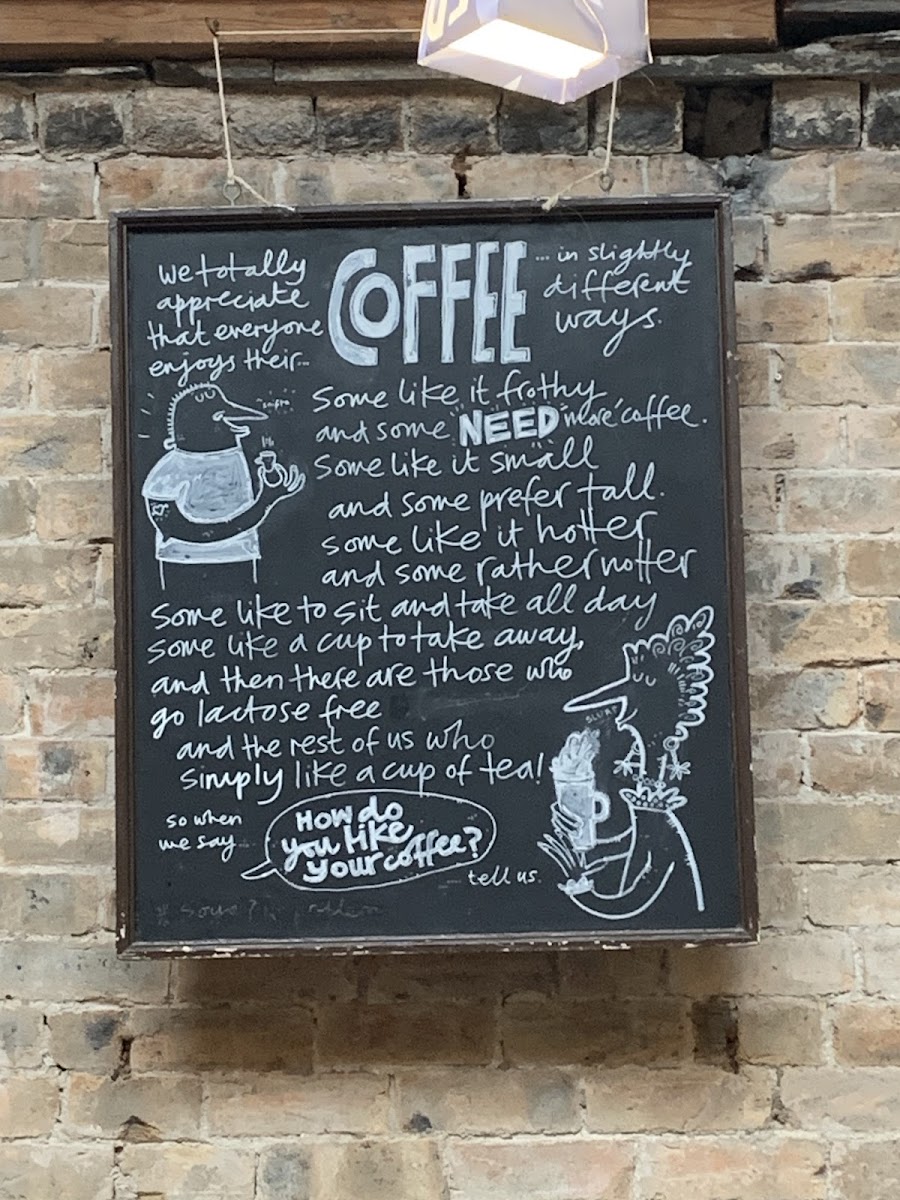 we totally
appreciate
that everyone
enjoys their...
COFFEE
... in slightly
different
ways.
Some like it frothy
and some NEED "more" coffee.
Some like it small
and some prefer tall.
some like it hotter
and some rather notter
Some like to sit and take all day
some like a cup to take away,
and then there are those who
go lactose free
and the rest of us who
simply like a cup of tea!
SLURP
so when
we say...
How do
you like
your coffee?
... tell us.